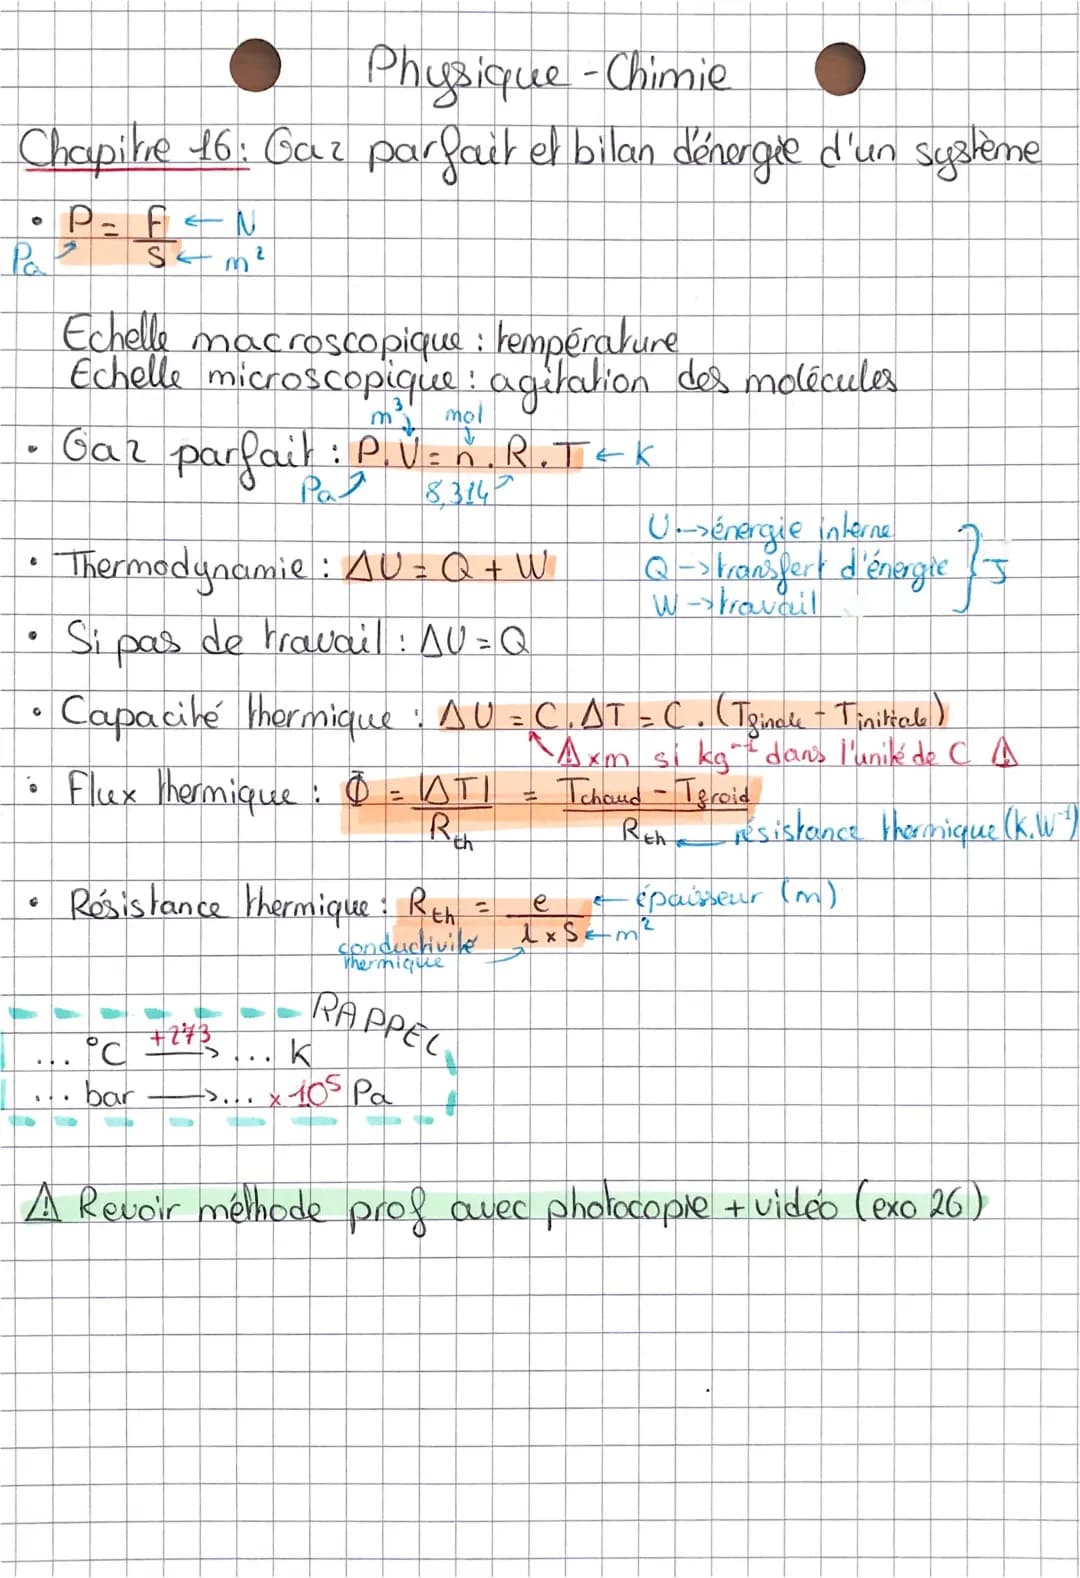 Physique - Chimie
Chapitre 16: Gaz parfait et bilan d'énergie d'un système
• P = F/S ← N
Pa ← m²
Echelle macroscopique : température
Echelle microscopique : agitation des molécules
m³ mol
• Gaz parfait : P.V = n.R.T ← K
Pa 8,314
U → énergie interne
• Thermodynamie : ΔU = Q + W
Q → transfert d'énergie } J
W → travail
• Si pas de travail : ΔU = Q
• Capacité thermique : ΔU = C.ΔT = C.(Tfinale - Tinitiale)
⚠ xm si kg⁻¹ dans l'unité de C ⚠
• Flux thermique : Φ = |ΔT|/Rth = Tchaud - Tfroid/Rth
← résistance thermique (K.W⁻¹)
• Résistance thermique : Rth = e/λ×S ← épaisseur (m)
← m²
conductivité
thermique
RAPPEL
... °C +273 → ... K
... bar → ... × 10⁵ Pa
⚠ Revoir méthode prof avec photocopie + vidéo (exo 26)